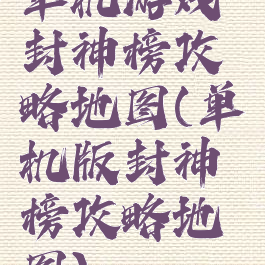 单机游戏
封神榜攻
略地图(单
机版封神
榜攻略地
图)